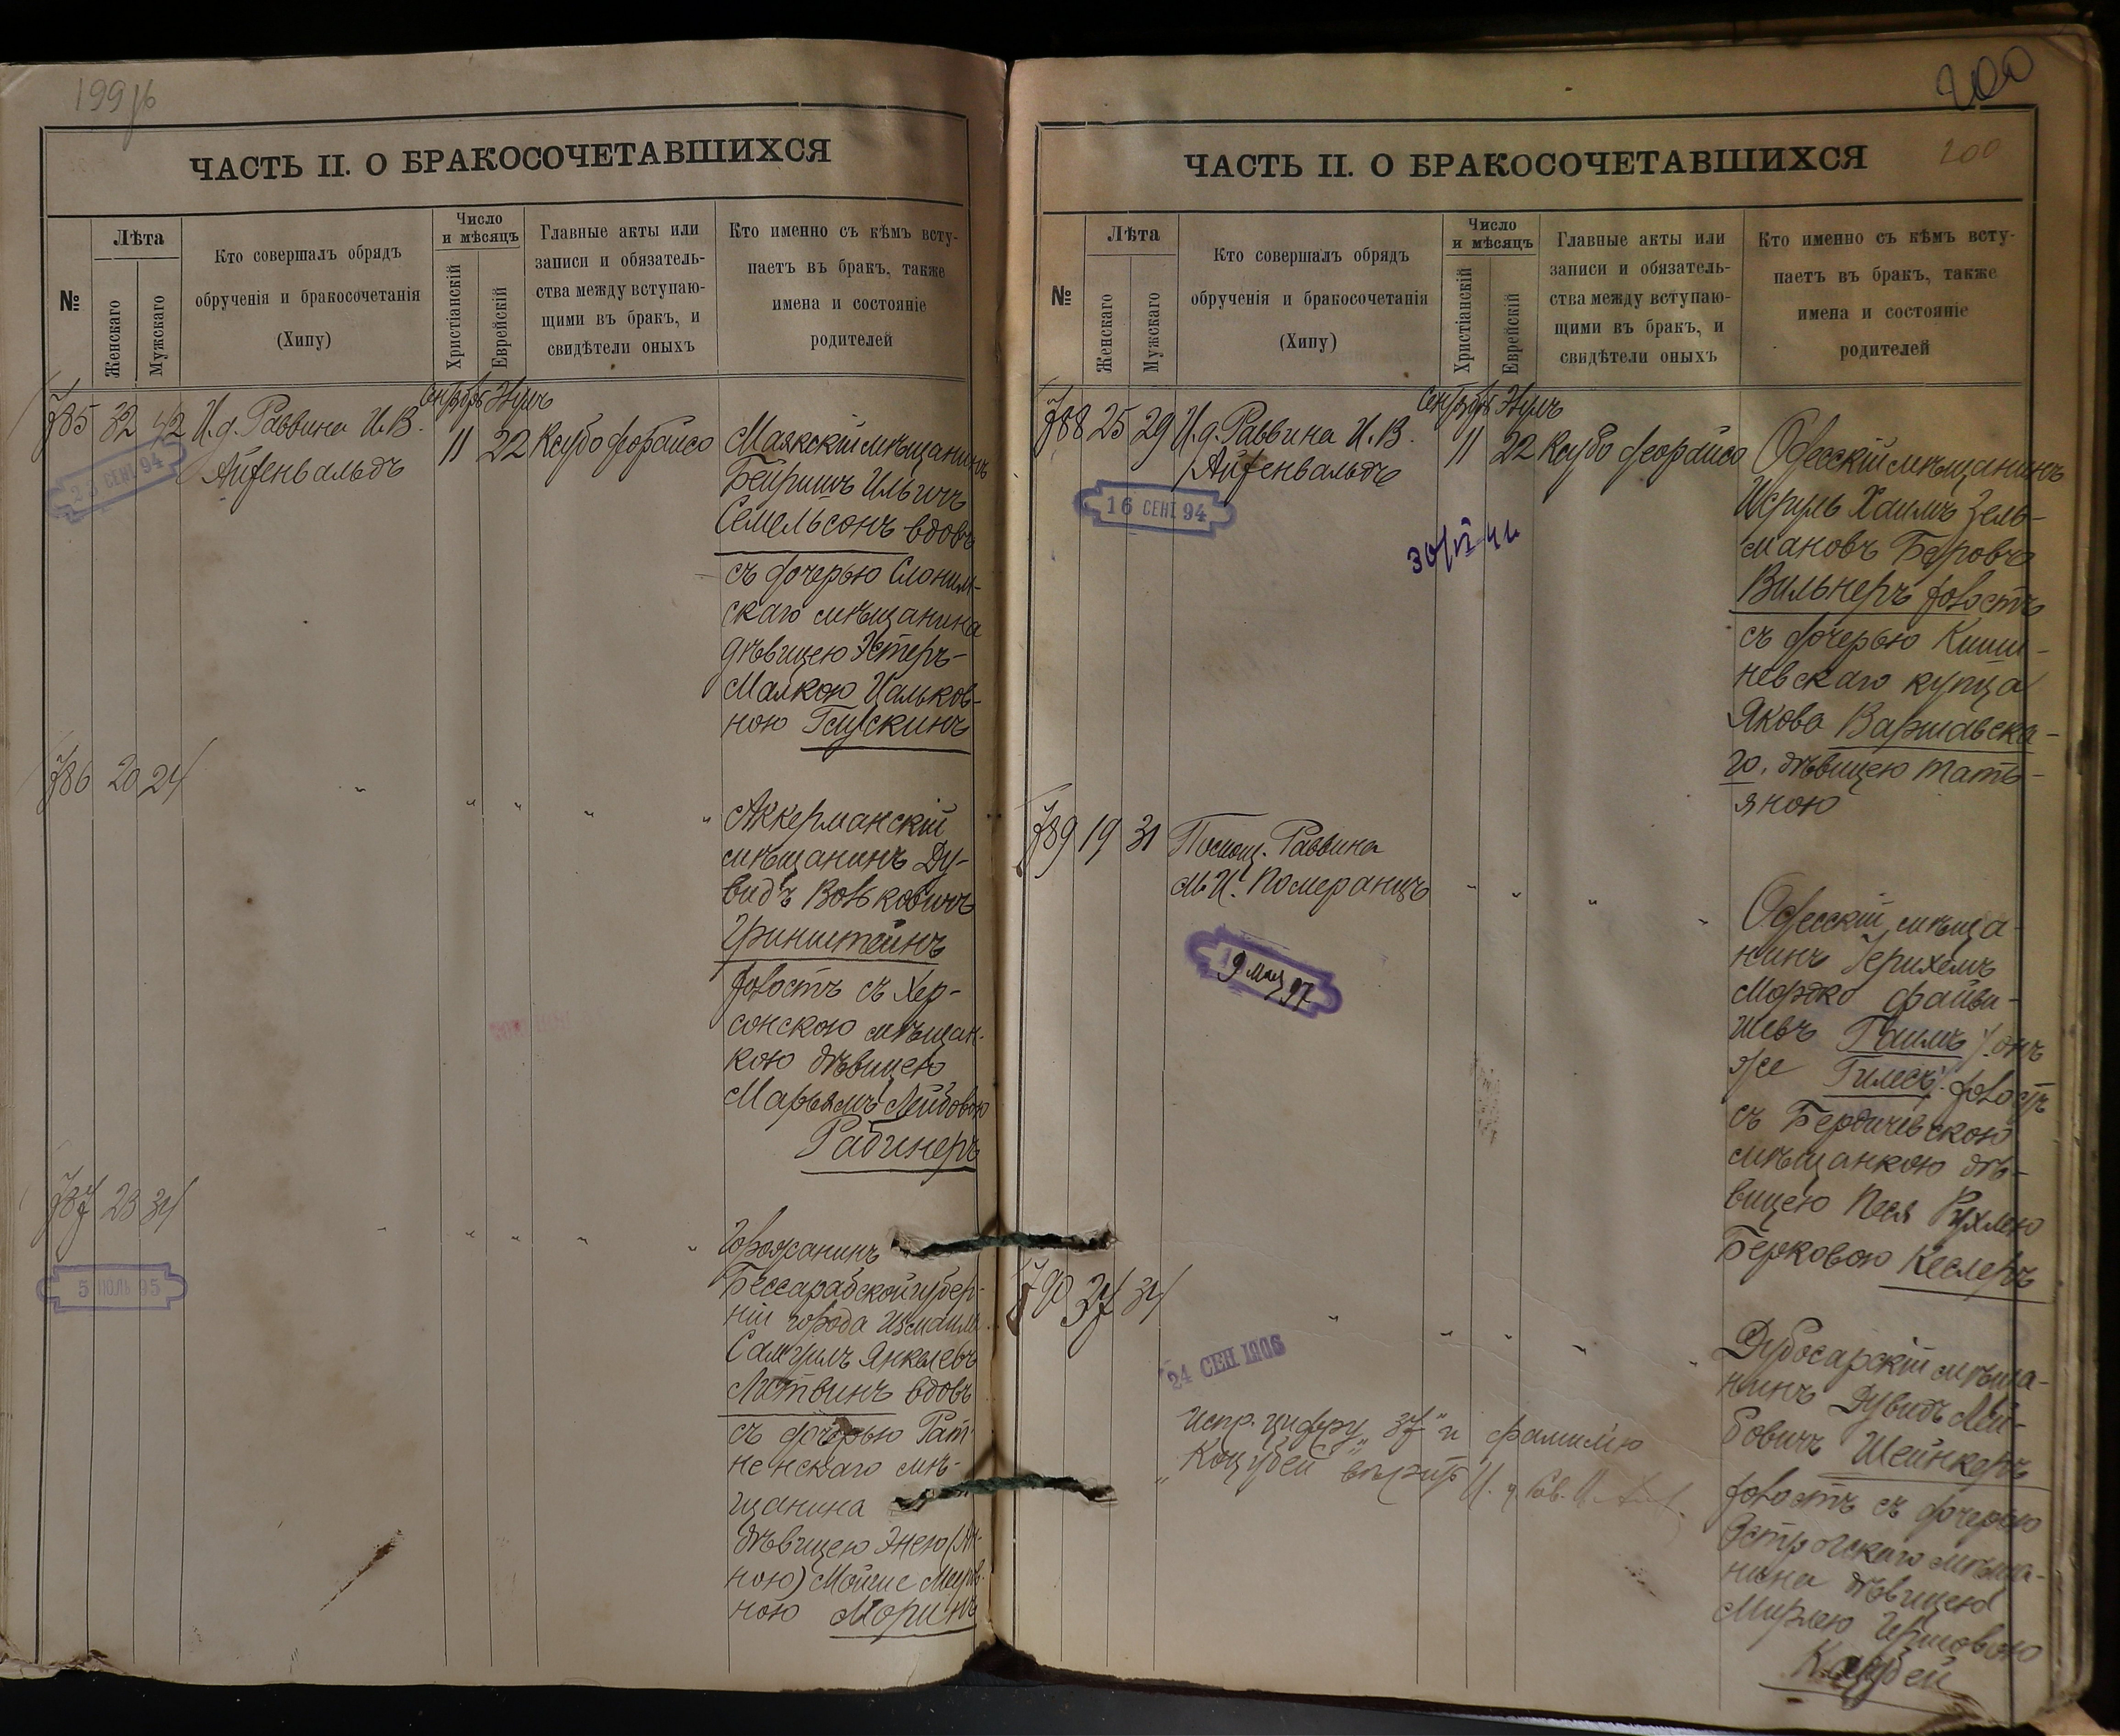 199 об
ЧАСТЬ II. О БРАКОСОЧЕТАВШИХСЯ
№
Лѣта
Женскаго
Мужскаго
Кто совершалъ обрядъ
обрученія и бракосочетанія
(Хипу)
Число
и мѣсяцъ
Христіанскій
Еврейскій
Главные акты или
записи и обязатель-
ства между вступаю-
щими въ бракъ, и
свидѣтели оныхъ
Кто именно съ кѣмъ всту-
паетъ въ бракъ, также
имена и состояніе
родителей
785 32 42 И.д. Раввина И.В.
Айзенвальдъ
23 СЕНТ 94
11 22
Маякскій мѣщанинъ
Семельсонъ вдовъ
съ дочерью Слоним-
скаго мѣщанина
дѣвицею Эстеръ-
Малкою Цальков-
ною
786 20 24
" " " " "
Аккерманскій
мѣщанинъ Ду-
видъ Вольковичъ
Гринштейнъ
холостъ съ Хер-
сонскою мѣщан-
кою дѣвицею
Марьямъ Лейбовою
Рабинеръ
787 23 34
5 ИЮЛЬ 95
" " " " "
Горожанинъ
Бессарабской губер-
ніи города Измаила
Самуилъ Янкелевъ
Литвинъ вдовъ
съ дочерью Рат-
ненскаго мѣ-
щанина
дѣвицею Энею (Ан-
ною)
ною Моринъ
200
200
ЧАСТЬ II. О БРАКОСОЧЕТАВШИХСЯ
№
Лѣта
Женскаго
Мужскаго
Кто совершалъ обрядъ
обрученія и бракосочетанія
(Хипу)
Число
и мѣсяцъ
Христіанскій
Еврейскій
Главные акты или
записи и обязатель-
ства между вступаю-
щими въ бракъ, и
свидѣтели оныхъ
Кто именно съ кѣмъ всту-
паетъ въ бракъ, также
имена и состояніе
родителей
788 25 29 И.д. Раввина И.В.
Айзенвальдъ
16 СЕНТ 94
11 22
Одесскій мѣщанинъ
Исруль Хаимъ Зель-
мановъ Беровъ
Вильнеръ холостъ
съ дочерью Киши-
невскаго купца
Якова Варшавска-
го, дѣвицею Тать-
яною
789 19 31 Помощ. Раввина
М.И. Померанцъ
9 мая 97
" " " "
Одесскій мѣща-
нинъ Іерихемъ
Мордко Файви-
шевъ Гаимъ (онъ
же Гилесъ) холостъ
съ Бердичевскою
мѣщанкою дѣ-
вицею Песя Рухлею
Берковою Кеслеръ
790 37 34
" " " " "
24 СЕН 1906
испр. цифру "37" и фамилію
"Коцубей" вѣрить
Дубосарскій мѣща-
нинъ Дувидъ Лей-
бовичъ Шейнкеръ
холостъ съ дочерью
Острожскаго мѣща-
нина дѣвицею
Мирлею Гершовою
Коцубей